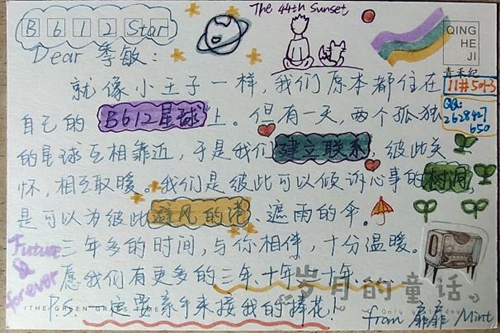 The 44th Sunset
B 6 1 2 Star
QING
HE
JI
Dear 季敏:
11#501-3
就像小王子一样，我们原本都住在
自己的 B612星球 上。但有一天，两个孤独
的星球互相靠近，于是我们建立联系，彼此关
怀，相互取暖。我们是彼此可以倾诉心事的树洞，
是可以为彼此避风的港、遮雨的伞。
三年多的时间，与你相伴，十分温暖。
愿我们有更多的三年、十年、三十年、
Future
&
forever
P.S. 一定要系手来接我的捧花！
THE GREEN
岁月的童话
from 霏霏 Mint